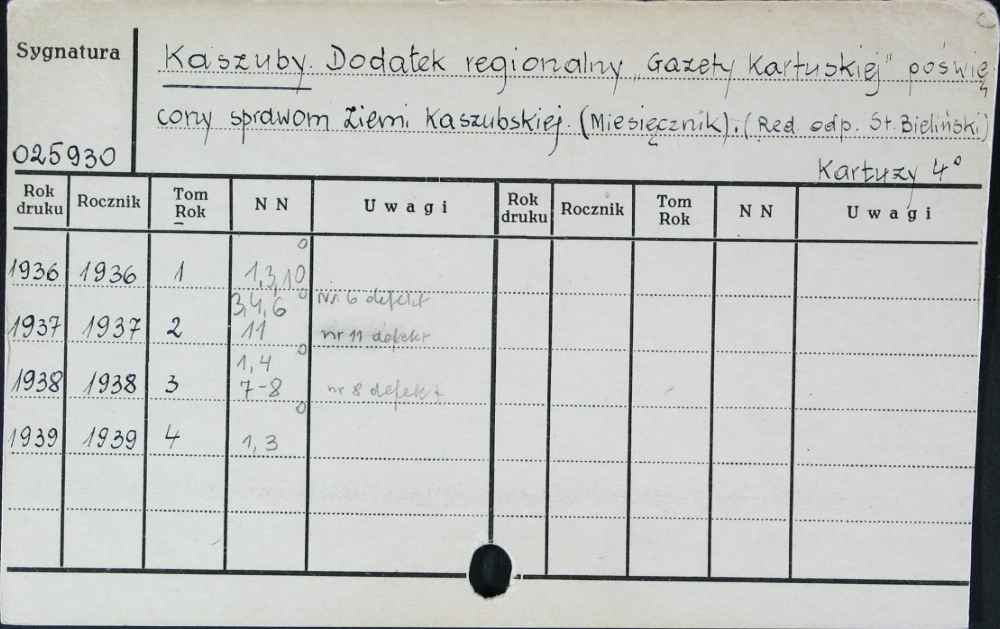 Sygnatura
Kaszuby. Dodatek regionalny „Gazety Kartuskiej" poświę
cony sprawom Ziemi Kaszubskiej. (Miesięcznik). (Red. odp. St. Bieliński)
025930
Kartuzy 4°
Rok druku Rocznik Tom Rok N N Uwagi Rok druku Rocznik Tom Rok N N Uwagi
1936 1936 1 1,3,10
3,4,6 Nr 6 defekt
1937 1937 2 11 nr 11 defekt
1,4
1938 1938 3 7-8 nr 8 defekt
1939 1939 4 1,3